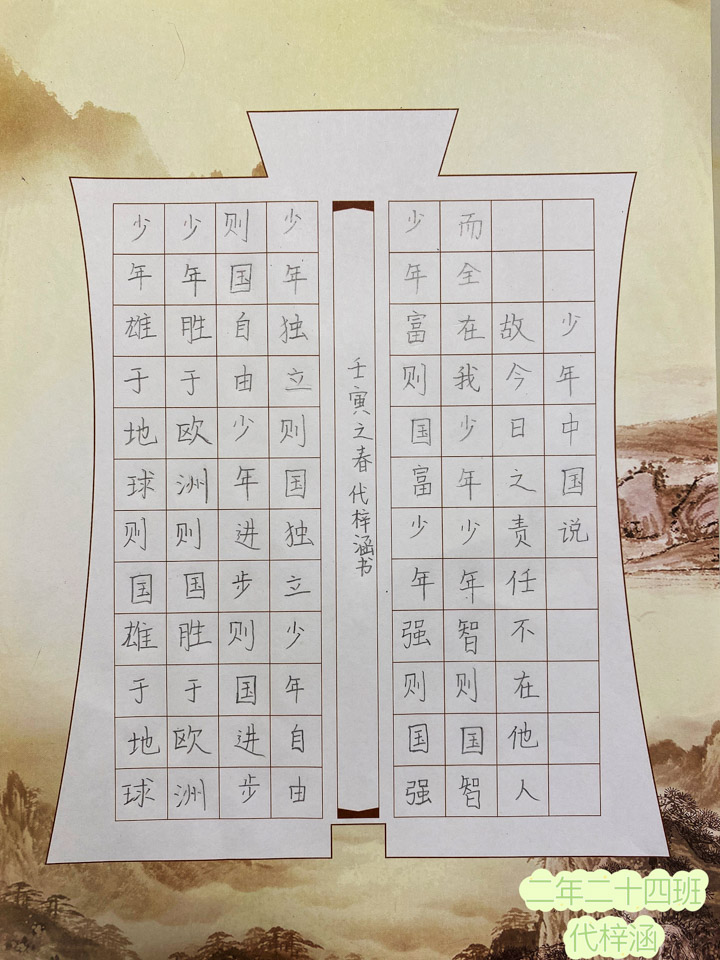 少年中国说
故今日之责任不在他人
而全在我少年少年智则国智
少年富则国富少年强则国强
壬寅之春代梓涵书
少年独立则国独立少年自由
则国自由少年进步则国进步
少年胜于欧洲则国胜于欧洲
少年雄于地球则国雄于地球
二年二十四班
代梓涵